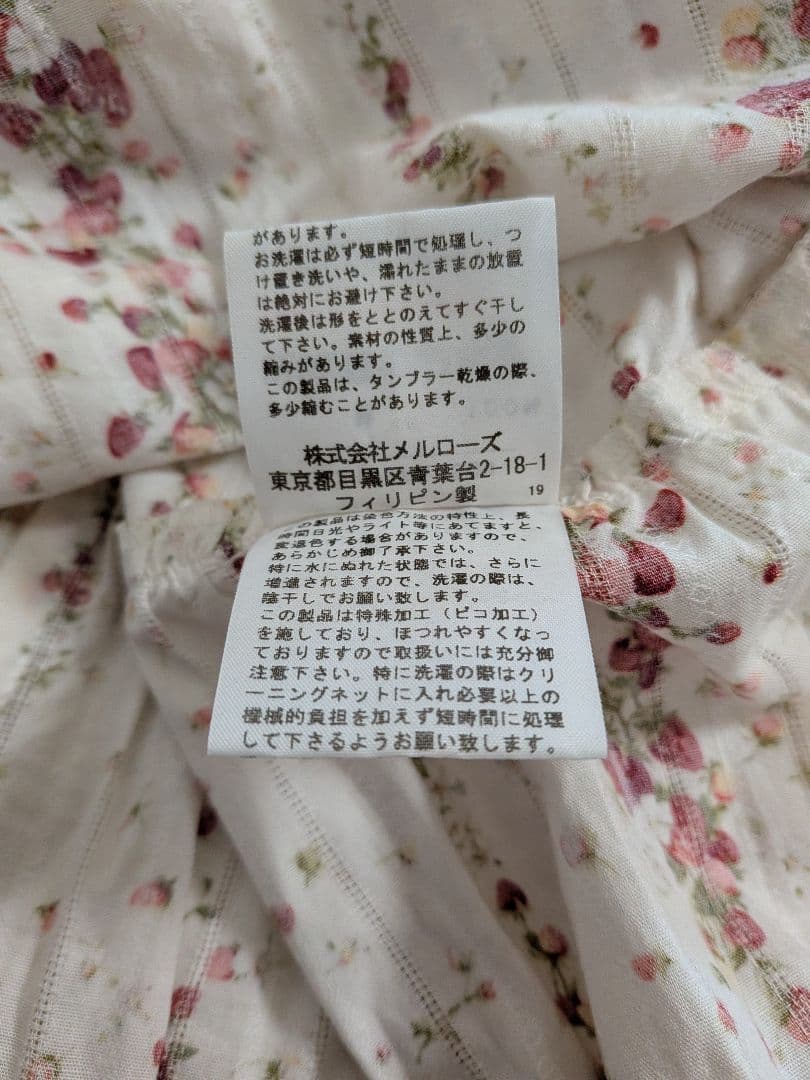 があります。
お洗濯は必ず短時間で処理し、つ
け置き洗いや、濡れたままの放置
は絶対にお避け下さい。
洗濯後は形をととのえてすぐ干し
て下さい。素材の性質上、多少の
縮みがあります。
この製品は、タンブラー乾燥の際、
多少縮むことがあります。
株式会社メルローズ
東京都目黒区青葉台2-18-1
フィリピン製 19
の製品は染色方法の特性上、長
時間日光やライト等にあてますと、
変退色する場合がありますので、
あらかじめ御了承下さい。
特に水にぬれた状態では、さらに
増進されますので、洗濯の際は、
陰干しでお願い致します。
この製品は特殊加工（ピコ加工）
を施しており、ほつれやすくなっ
ておりますので取扱いには充分御
注意下さい。特に洗濯の際はクリ
ーニングネットに入れ必要以上の
機械的負担を加えず短時間に処理
して下さるようお願い致します。